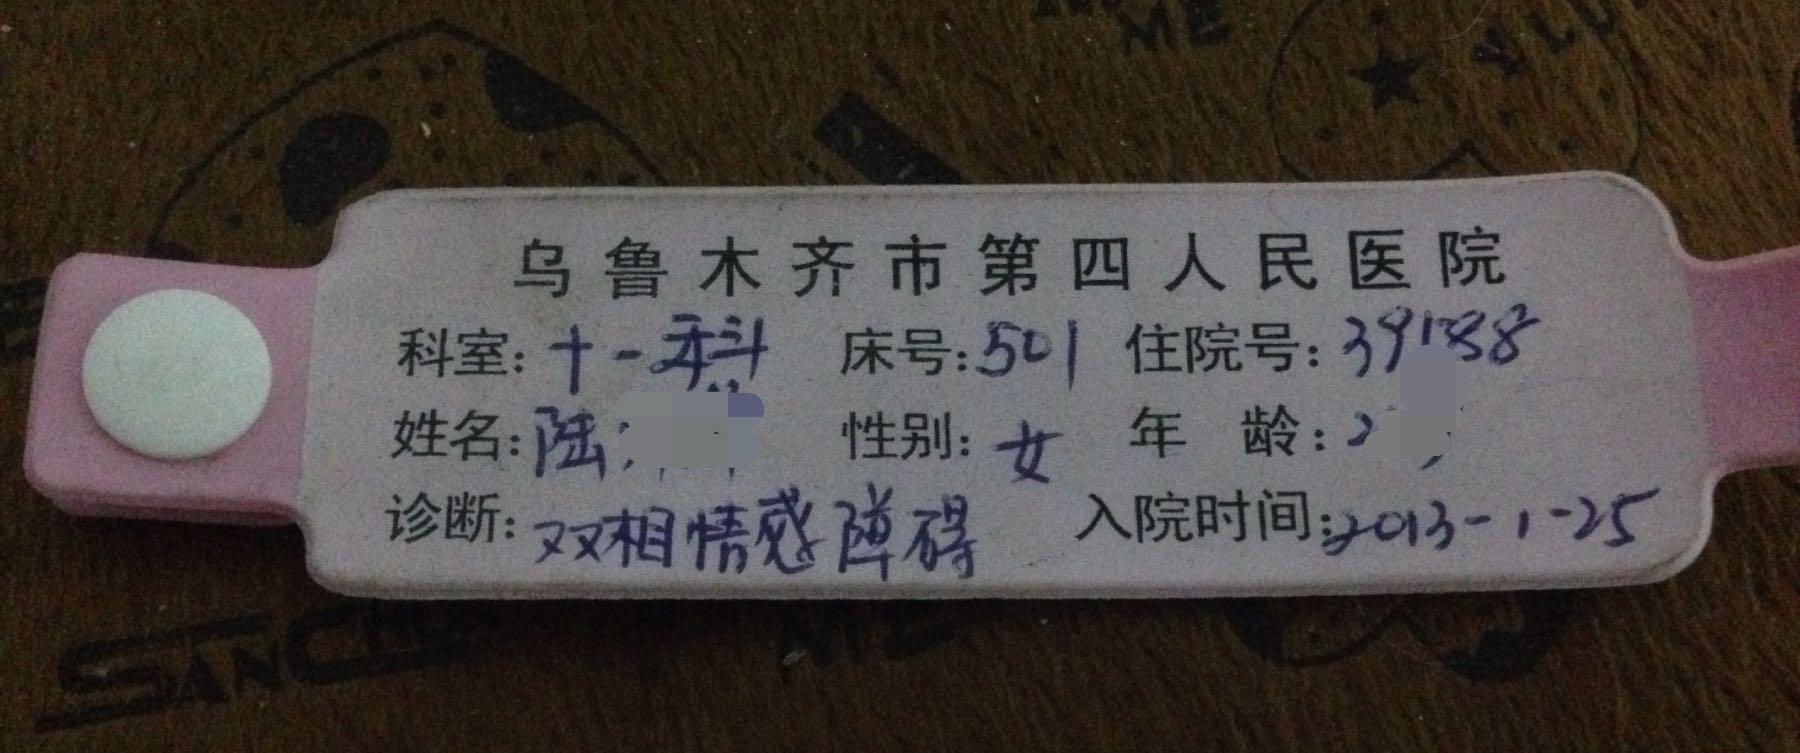 乌鲁木齐市第四人民医院
科室：十一科 床号：501 住院号：39188
姓名：陆 性别：女 年 龄：2
诊断：双相情感障碍 入院时间：2013-1-25